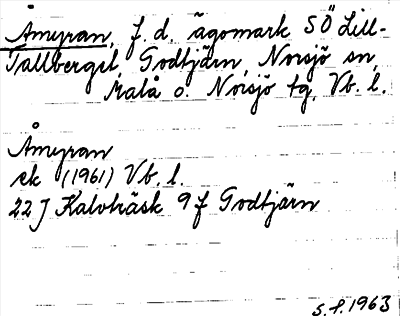 Åmyran, f.d. ägomark SÖ Lill-
Tallberget, Godtjärn, Norsjö sn,
Malå o. Norsjö tg, Vb. l.
Åmyran
ek (1961) Vb. l.
22 J Kalvträsk 9 f Godtjärn
S.f. 1963